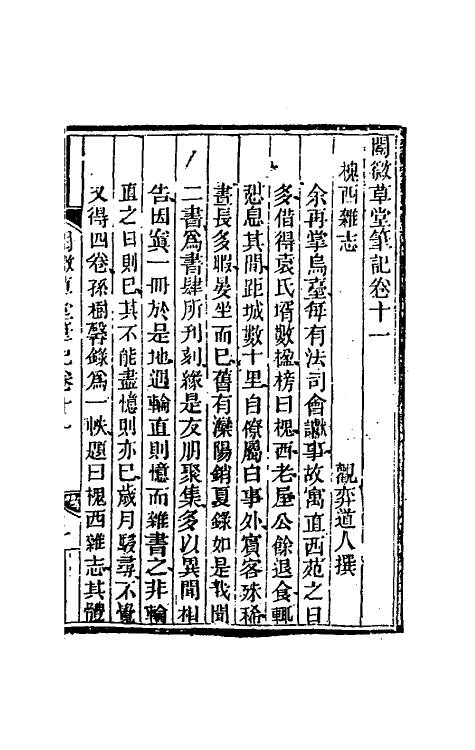 閱微草堂筆記卷十一
槐西雜志
觀弈道人撰
余再掌烏臺每有法司會讞事故寓直西苑之日
多借得袁氏壻數楹榜曰槐西老屋公餘退食輒
憩息其間距城數十里自僚屬白事外賓客殊稀
晝長多暇晏坐而已舊有灤陽銷夏錄如是我聞
二書爲書肆所刊刻緣是友朋聚集多以異聞相
告因寘一冊於是地遇輪直則憶而雜書之非輪
直之日則已其不能盡憶則亦已歲月駸尋不覺
又得四卷孫樹馨錄爲一帙題曰槐西雜志其體
閱微草堂筆記卷十一